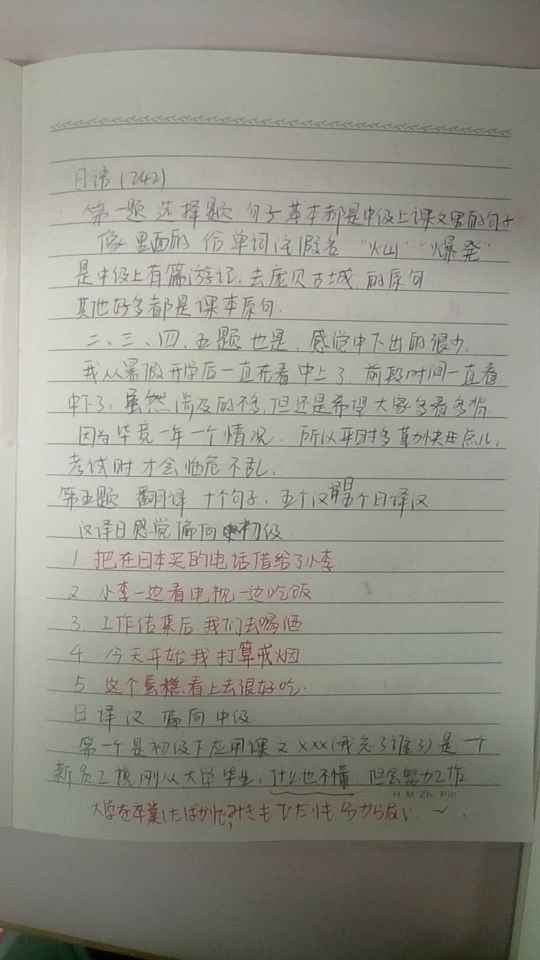 日语(242)
第一题 选择题 句子基本都是中级上课文里的句子
像里面的 给单词注假名 "火山" "爆発"
是中级上有篇游记,去庞贝古城 的原句
其他好多都是课本原句.
二、三、四、五题也是,感觉中下出的很少,
我从暑假开学后一直在看中上了,前段时间一直看
中下了,虽然涉及的不多,但还是希望大家多看多背
因为毕竟一年一个情况,所以平时多勤快点儿,
考试时才会临危不乱,
第五题 翻译 十个句子,五个汉译日 五个日译汉
汉译日感觉偏向初级.
1. 把在日本买的电话借给了小李.
2. 小李一边看电视一边吃饭
3. 工作结束后我们去喝酒
4. 今天开始我打算戒烟
5. 这个蛋糕看上去很好吃.
日译汉 偏向中级.
第一个是初级下应用课文 xxx(我忘了谁了)是一个
新员工 刚从大学毕业,什么也不懂,但会努力工作
H M Zhi Pin
大学を卒業したばかりで,みぎもひだりもわからない.~.